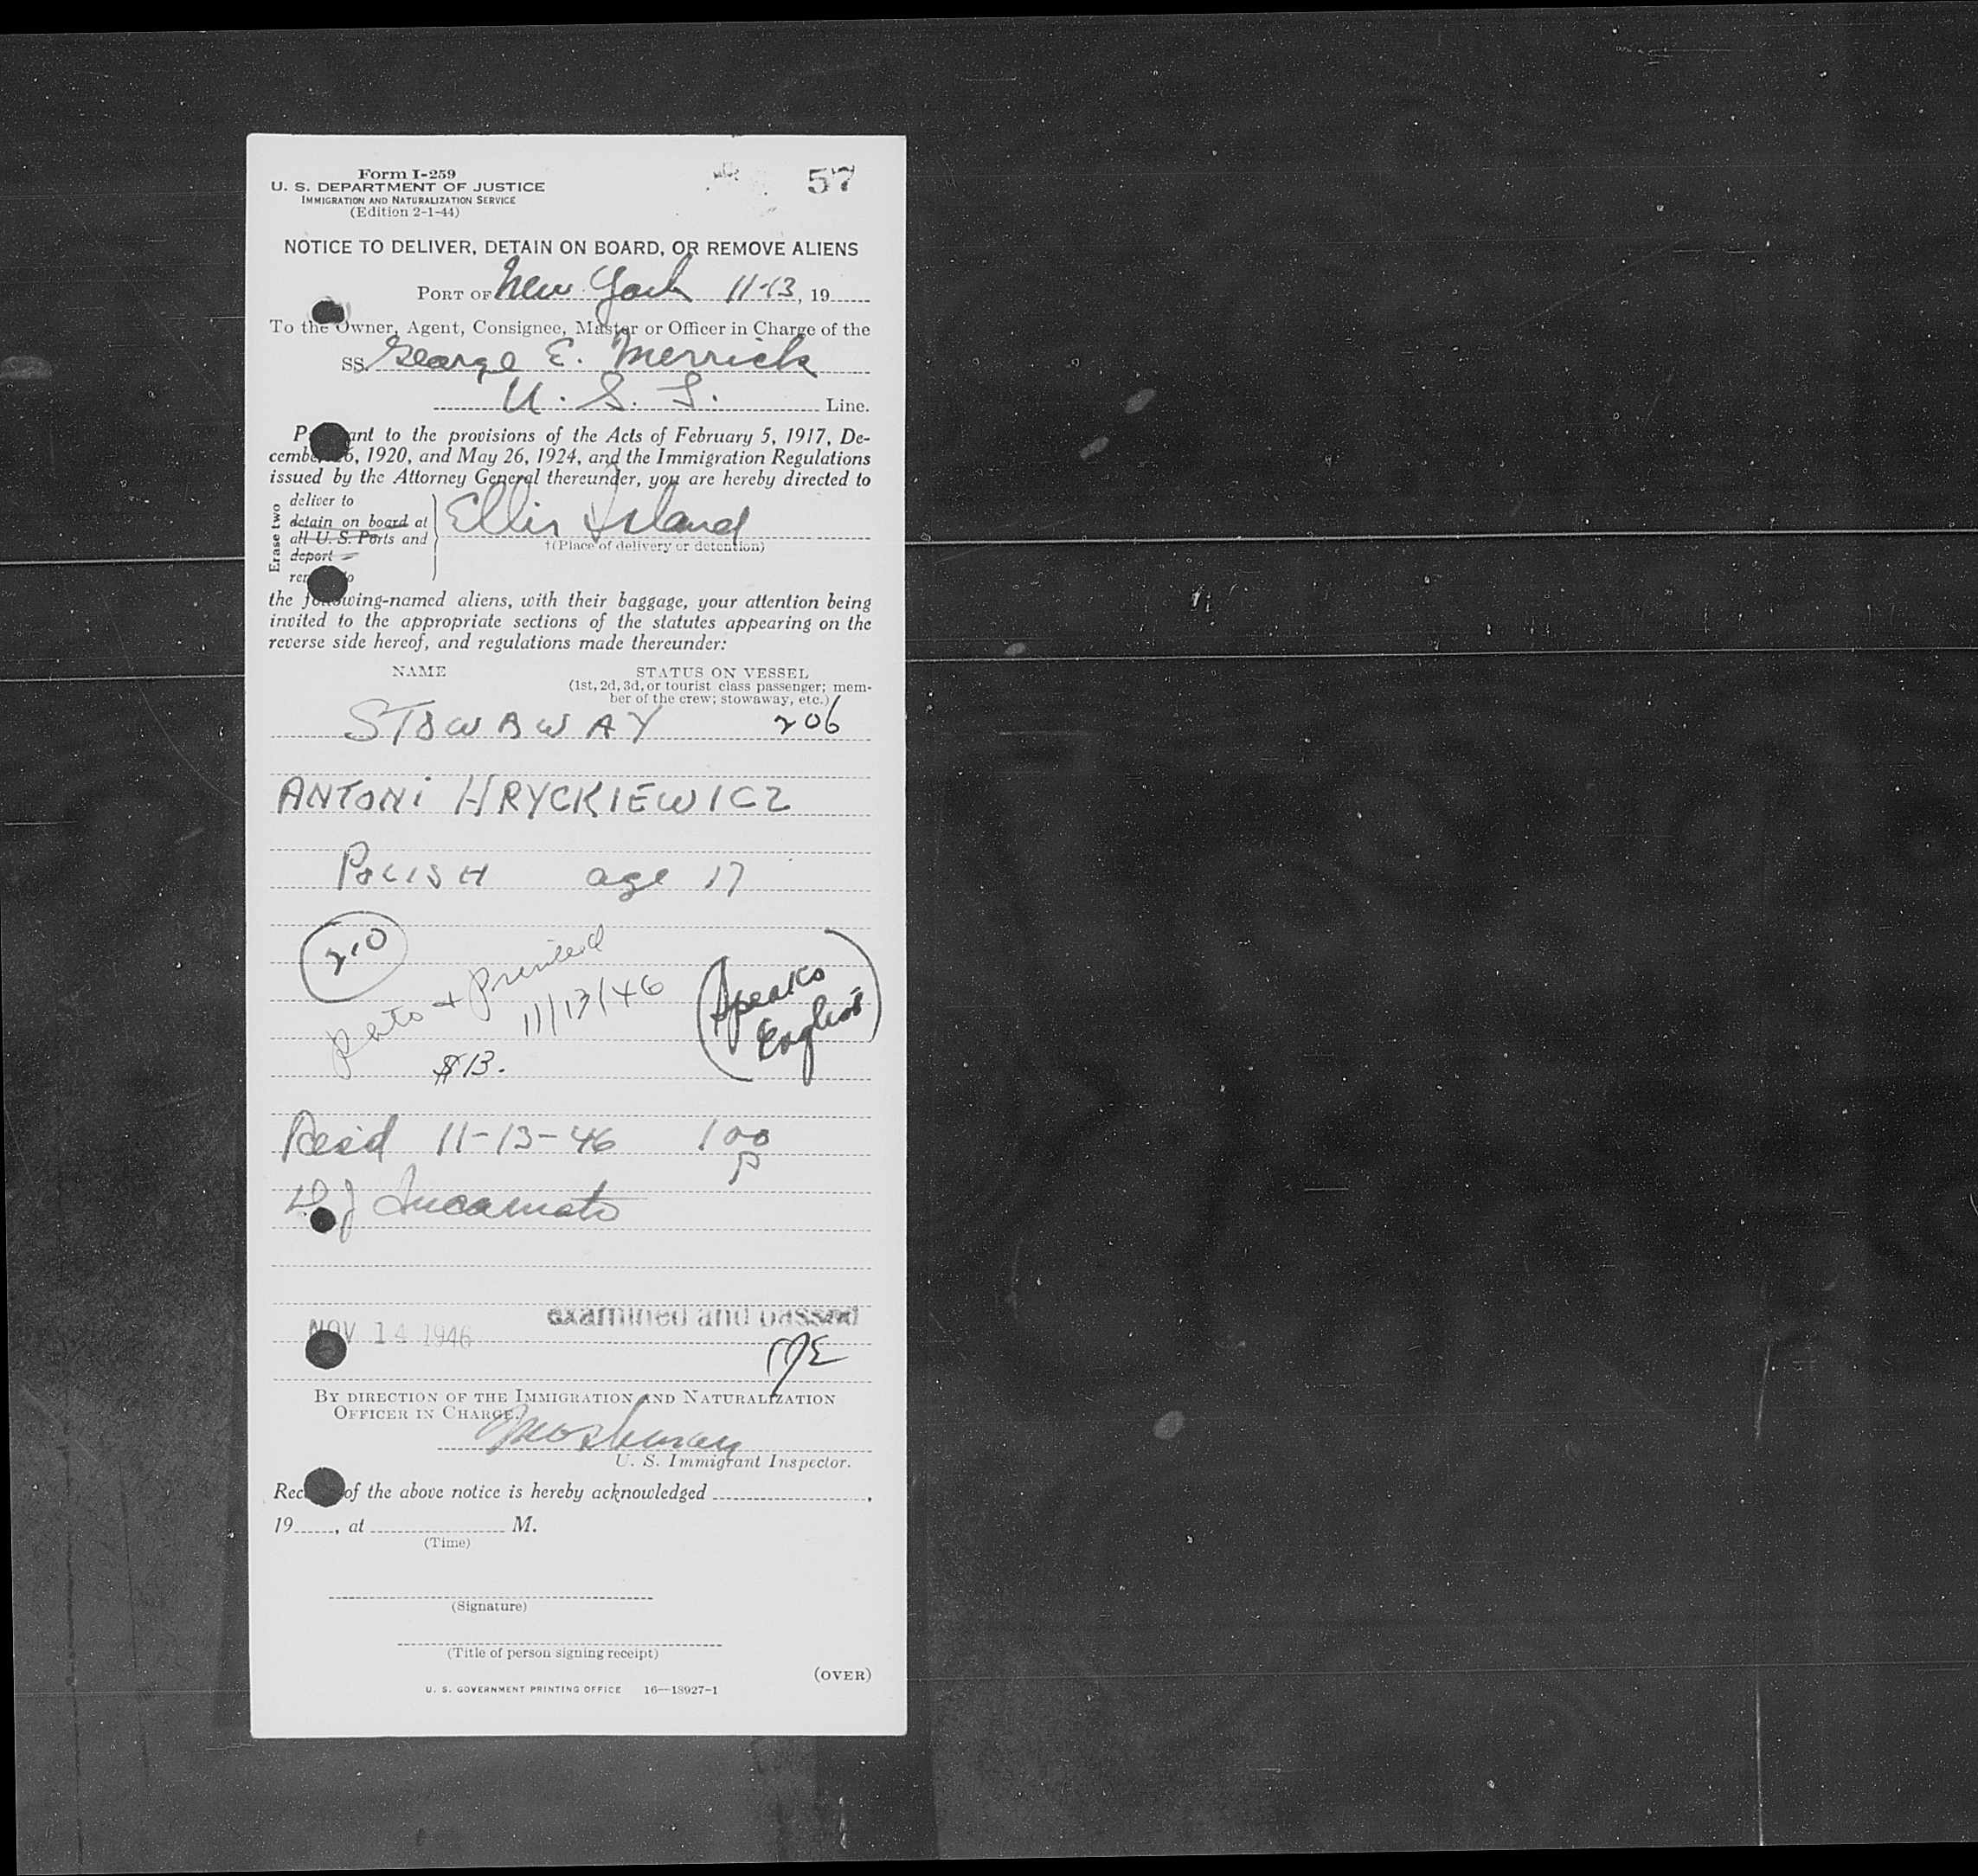 Form I-259
57
U. S. DEPARTMENT OF JUSTICE
IMMIGRATION AND NATURALIZATION SERVICE
(Edition 2-1-44)
NOTICE TO DELIVER, DETAIN ON BOARD, OR REMOVE ALIENS
PORT OF New York 11-13, 19
To the Owner, Agent, Consignee, Master or Officer in Charge of the
SS. George E. Merrick
U. S. L. Line.
ant to the provisions of the Acts of February 5, 1917, De-
cember 26, 1920, and May 26, 1924, and the Immigration Regulations
issued by the Attorney General thereunder, you are hereby directed to
Erase two
deliver to
detain on board at
all U. S. Ports and
deport
Ellis Island
†(Place of delivery or detention)
the following-named aliens, with their baggage, your attention being
invited to the appropriate sections of the statutes appearing on the
reverse side hereof, and regulations made thereunder:
NAME STATUS ON VESSEL
(1st, 2d, 3d, or tourist class passenger; mem-
ber of the crew; stowaway, etc.)
STOWAWAY 206
ANTONi HRYCKIEWICZ
POLISH age 17
210
photo + printed
11/13/46
(Speaks
English)
$13.
Rec'd 11-13-46 100
P
Incarnato
examined and passed
NOV 14 1946
BY DIRECTION OF THE IMMIGRATION AND NATURALIZATION
OFFICER IN CHARGE.
U. S. Immigrant Inspector.
of the above notice is hereby acknowledged ,
19 , at M.
(Time)
(Signature)
(Title of person signing receipt)
(OVER)
U. S. GOVERNMENT PRINTING OFFICE 16—18927-1